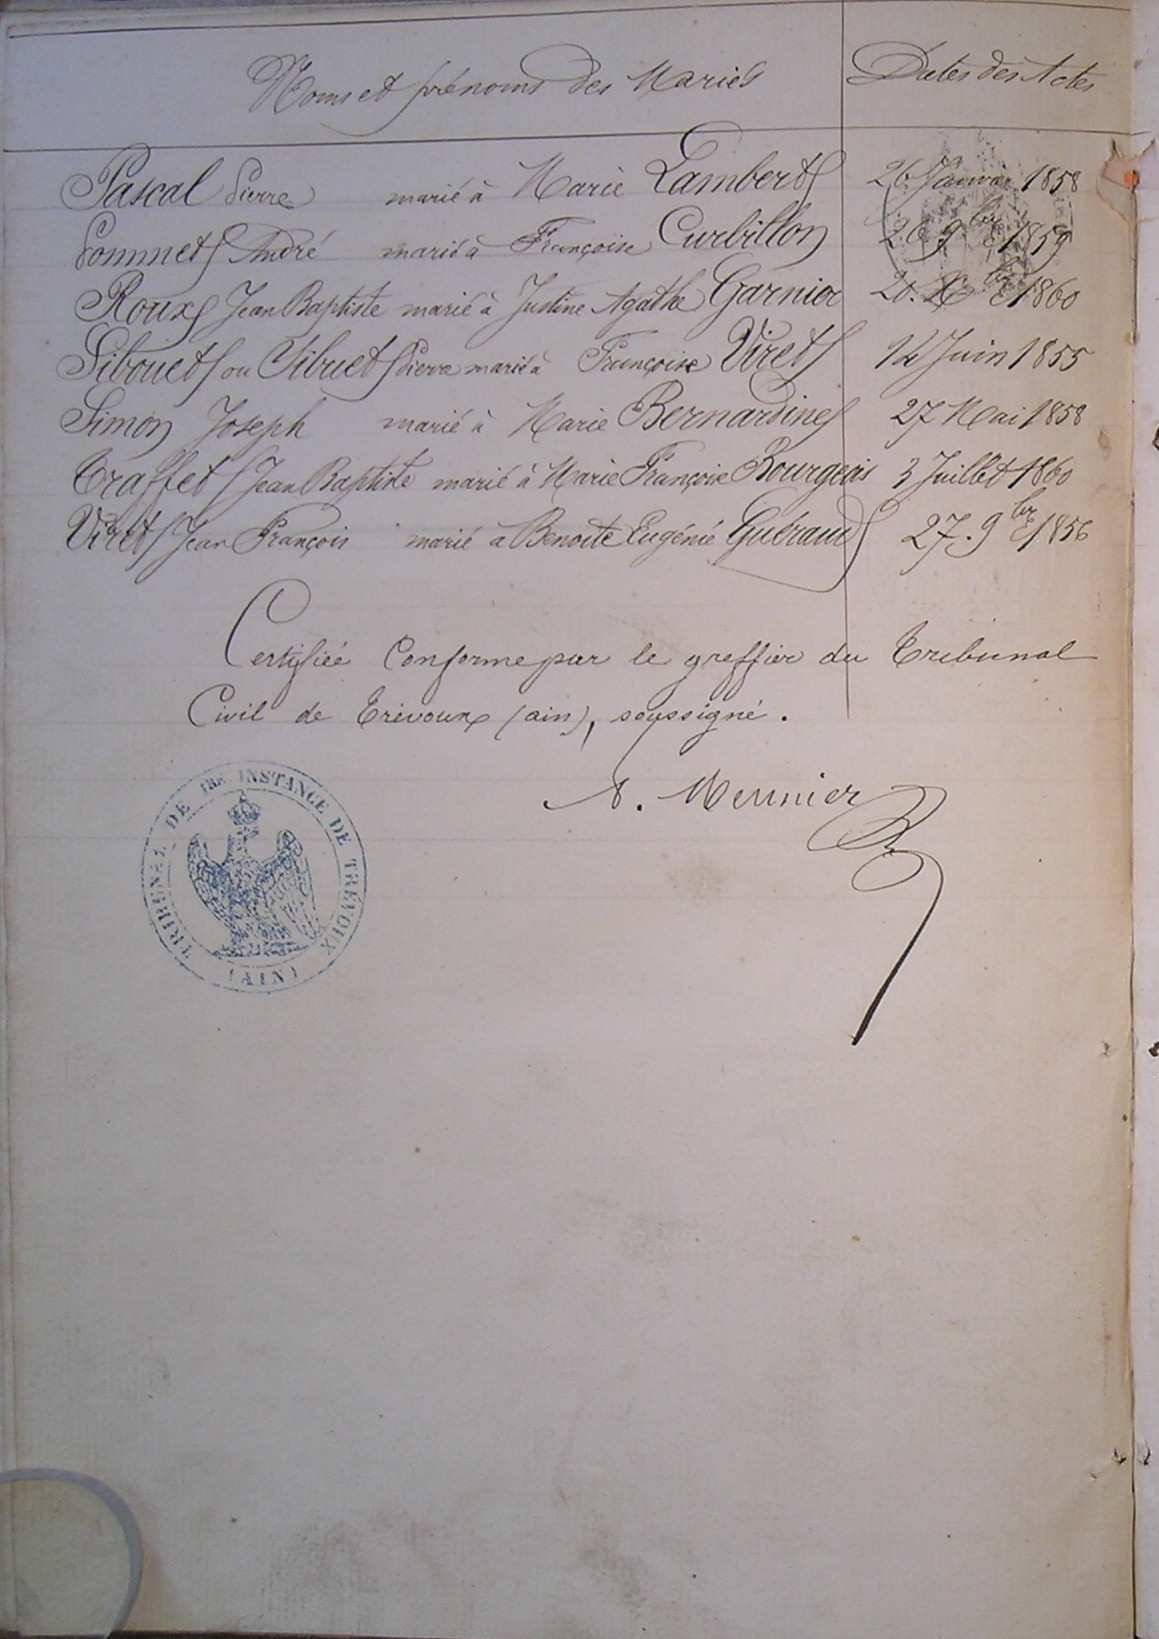 Noms et prénoms des Mariés Dates des Actes
Pascal Pierre marié à Marie Lambert 26 Janvier 1858
Pommet André marié à Françoise Curbillon 20 9bre 1859
Roux Jean Baptiste marié à Justine Agathe Garnier 20. Xbre 1860
Sibouet ou Sibuet Pierre marié à Françoise Viret 14 Juin 1855
Simon Joseph marié à Marie Bernardine 27 Mai 1858
Traffet Jean Baptiste marié à Marie Françoise Bourgeois 3 Juillet 1860
Viret Jean François marié à Benoite Eugénie Guéraud 27. 9bre 1856
Certifiée Conforme par le greffier du Tribunal
Civil de Trévoux (ain), soussigné.
A. Meunier
TRIBUNAL DE 1RE INSTANCE DE TRÉVOUX
(AIN)